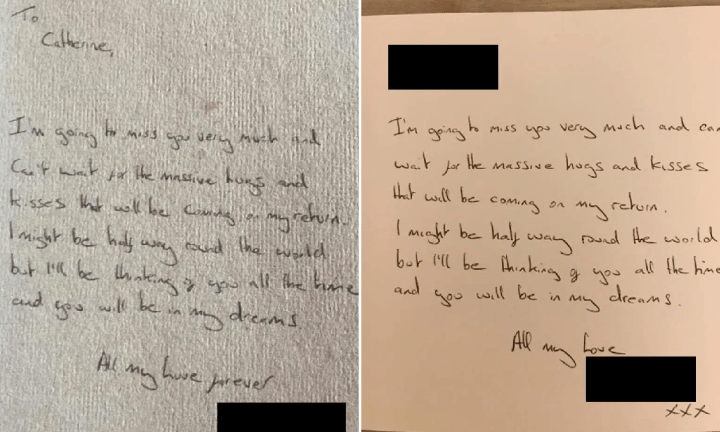 To
Catherine,
I'm going to miss you very much and
can't wait for the massive hugs and
kisses that will be coming on my return.
I might be half way round the world
but I'll be thinking of you all the time
and you will be in my dreams.
All my love forever
I'm going to miss you very much and can
wait for the massive hugs and kisses
that will be coming on my return.
I might be half way round the world
but I'll be thinking of you all the time
and you will be in my dreams.
All my Love
xxx